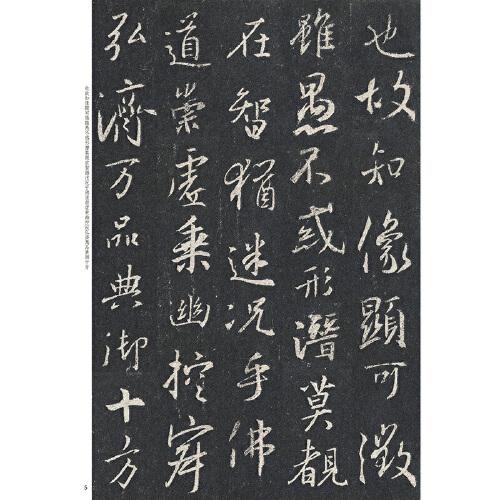 也故知像顯可徵
雖愚不惑形潛莫覩
在智猶迷况乎佛
道崇虛乗幽控寂
弘濟万品典御十方
5